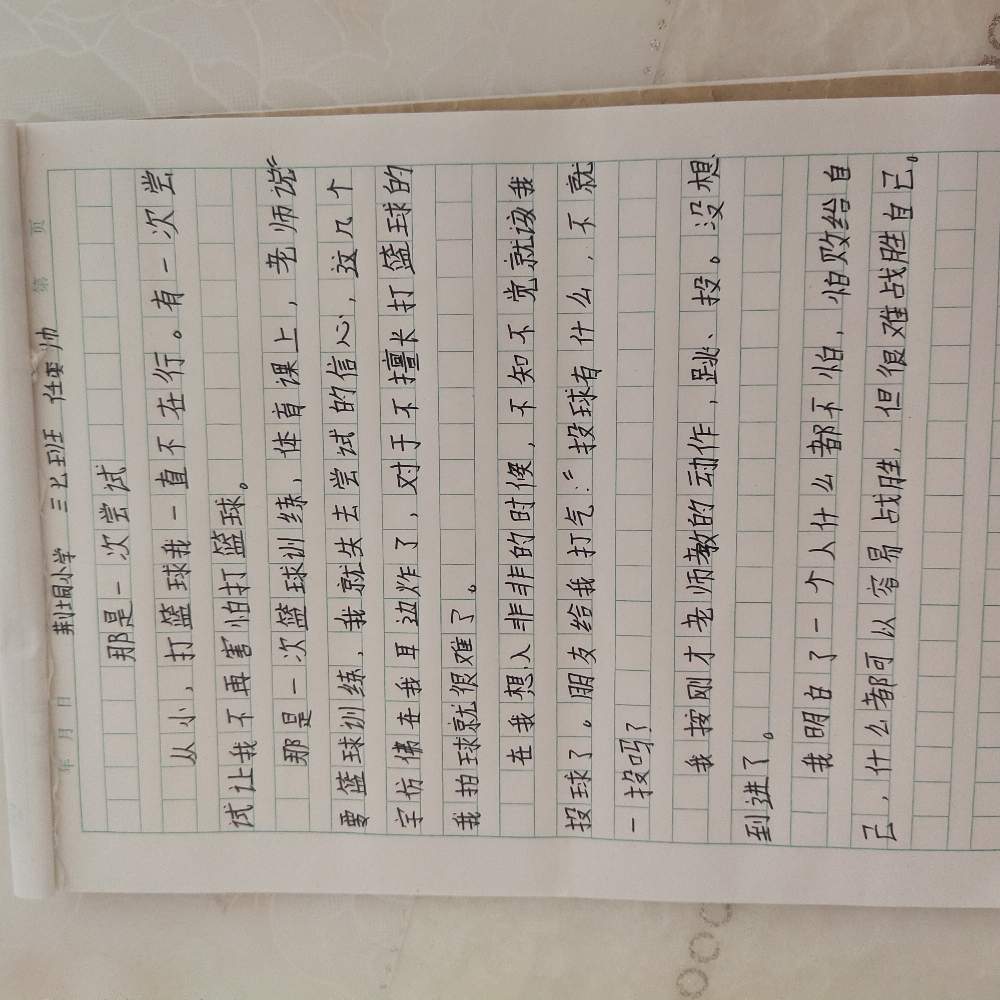 年 月 日 第 页
小学 三七班
那是一次尝试
从小，打篮球我一直不在行。有一次尝
试让我不再害怕打篮球。
那是一次篮球训练，体育课上，老师说“
要篮球训练，我就失去尝试的信心，这几个
字仿佛在我耳边炸了，对于不擅长打篮球的
我拍球就很难了。
在我想入非非的时候，不知不觉就该我
投球了。朋友给我打气：“投球有什么，不就
一投吗？
我按刚才老师教的动作，跳、投。没想
到进了。
我明白了一个人什么都不怕，怕败给自
己，什么都可以容易战胜，但很难战胜自己。